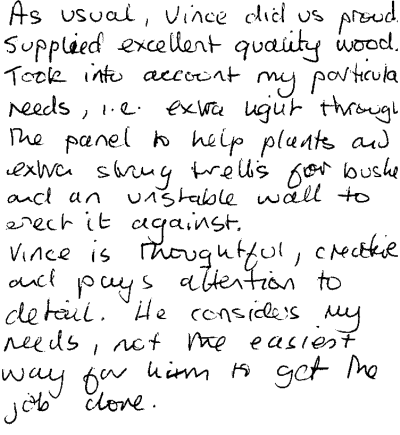 As usual, Vince did us proud.
Supplied excellent quality wood.
Took into account my particula
needs, i.e. extra light through
the panel to help plants and
extra strong trellis for bushe
and an unstable wall to
erect it against.
Vince is thoughtful, creative
and pays attention to
detail. He considers my
needs, not the easiest
way for him to get the
job done.